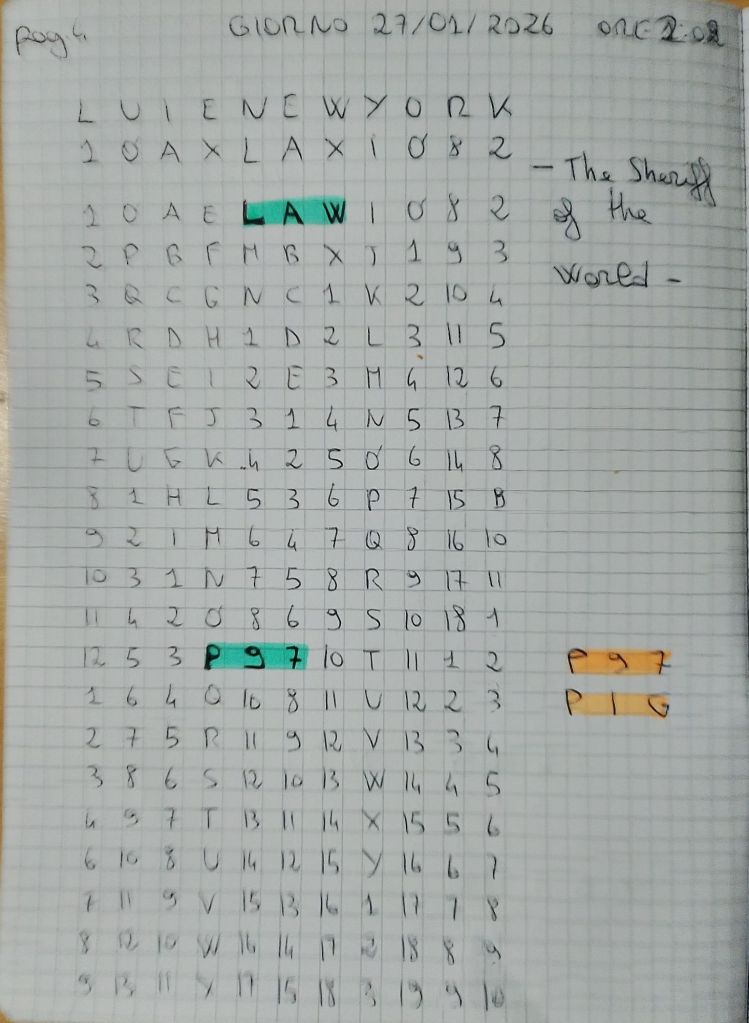 pag 4 GIORNO 27/01/2026 ORE 2:02
L U I E N E W Y O R K
1 O A X L A X I O 8 2
- The Sheriff
1 O A E L A W I O 8 2 of the
2 P B F M B X J 1 9 3
World -
3 Q C G N C 1 K 2 10 4
4 R D H 1 D 2 L 3 11 5
5 S E I 2 E 3 M 4 12 6
6 T F J 3 1 4 N 5 13 7
7 U G K 4 2 5 O 6 14 8
8 1 H L 5 3 6 P 7 15
9 2 I M 6 4 7 Q 8 16 10
10 3 1 N 7 5 8 R 9 17 11
11 4 2 O 8 6 9 S 10 18 1
12 5 3 P 9 7 10 T 11 1 2 P 9 7
1 6 4 Q 10 8 11 U 12 2 3 P I G
2 7 5 R 11 9 12 V 13 3 4
3 8 6 S 12 10 13 W 14 4 5
4 9 7 T 13 11 14 X 15 5 6
6 10 8 U 14 12 15 Y 16 6 7
7 11 9 V 15 13 16 1 17 7 8
8 12 10 W 16 14 17 2 18 8 9
9 13 11 X 17 15 18 3 19 9 10